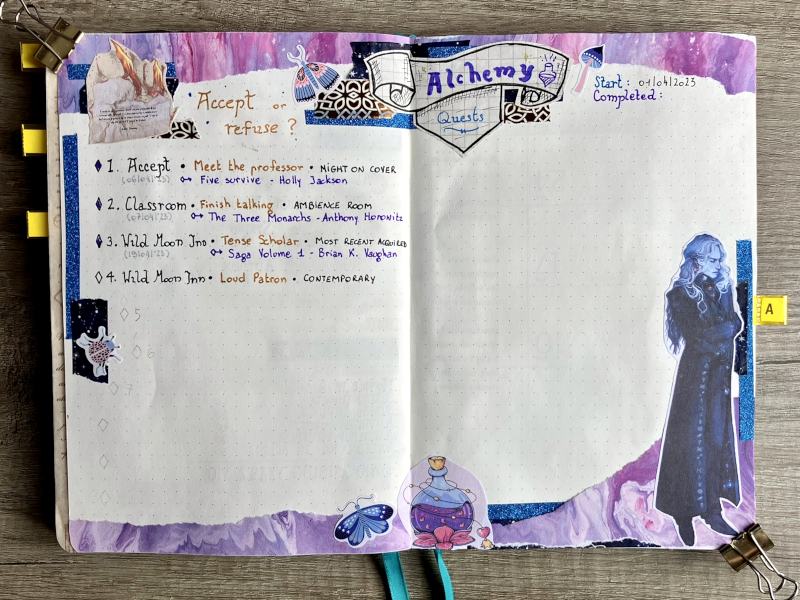 Accept or
refuse?
1. Accept • Meet the professor • NIGHT ON COVER
(06/04/23) Five survive - Holly Jackson
2. Classroom • Finish talking • AMBIENCE ROOM
(07/04/23) The Three Monarchs - Anthony Horowitz
3. Wild Moon Inn • Tense Scholar • MOST RECENT ACQUIRED
(19/04/23) Saga Volume 1 - Brian K. Vaughan
4. Wild Moon Inn • Loud Patron • CONTEMPORARY
5
6
7
Alchemy
Quests
Start: 01/04/2023
Completed:
A